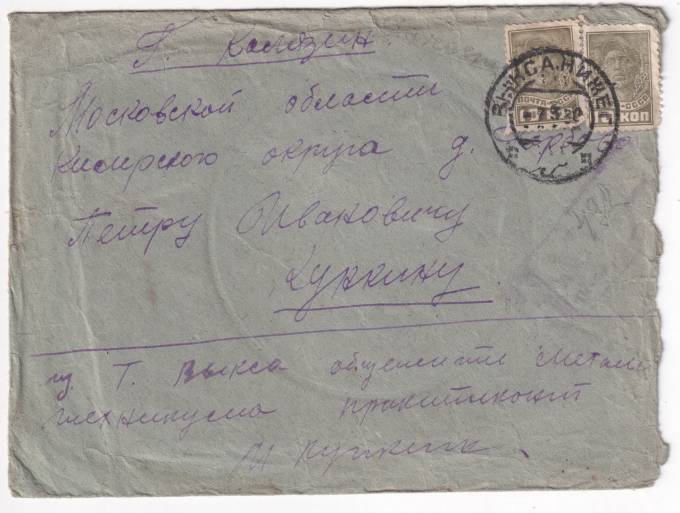 г. Калязин
Московской области
Кимрского округа д.
Петру Ивановичу
Куркину
из г. Выкса общежитие метал
техникума практикант
И Куркин.
ВЫКСА НИЖЕГ
ПОЧТА СССР
КОП